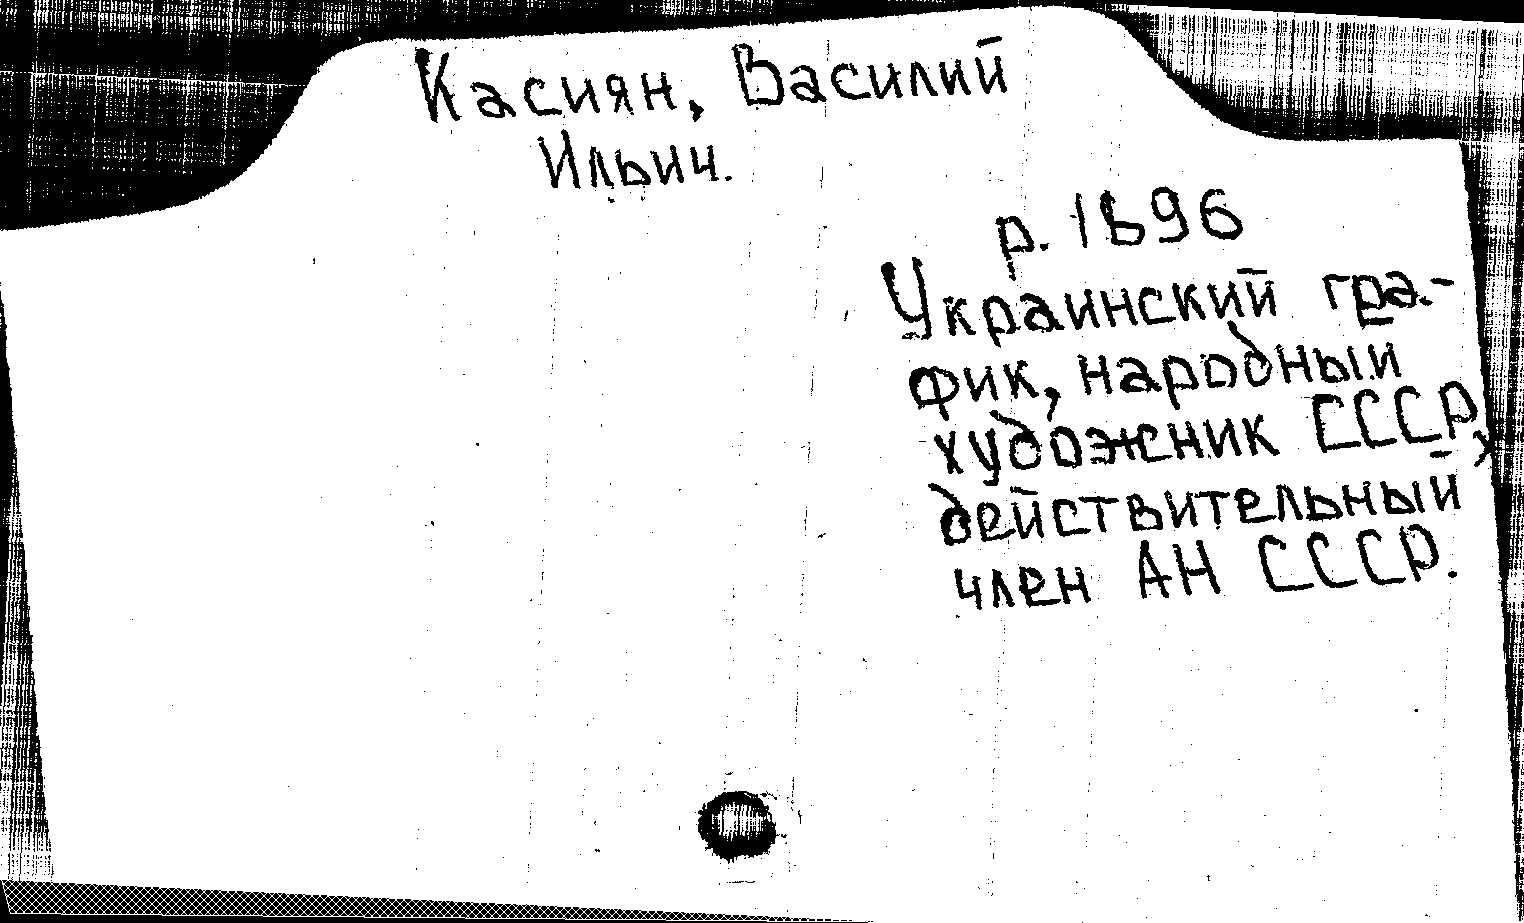 Касиян, Василий
Ильич.
р. 1896
Украинский гра-
фик, народный
художник СССР,
действительный
член АН СССР.